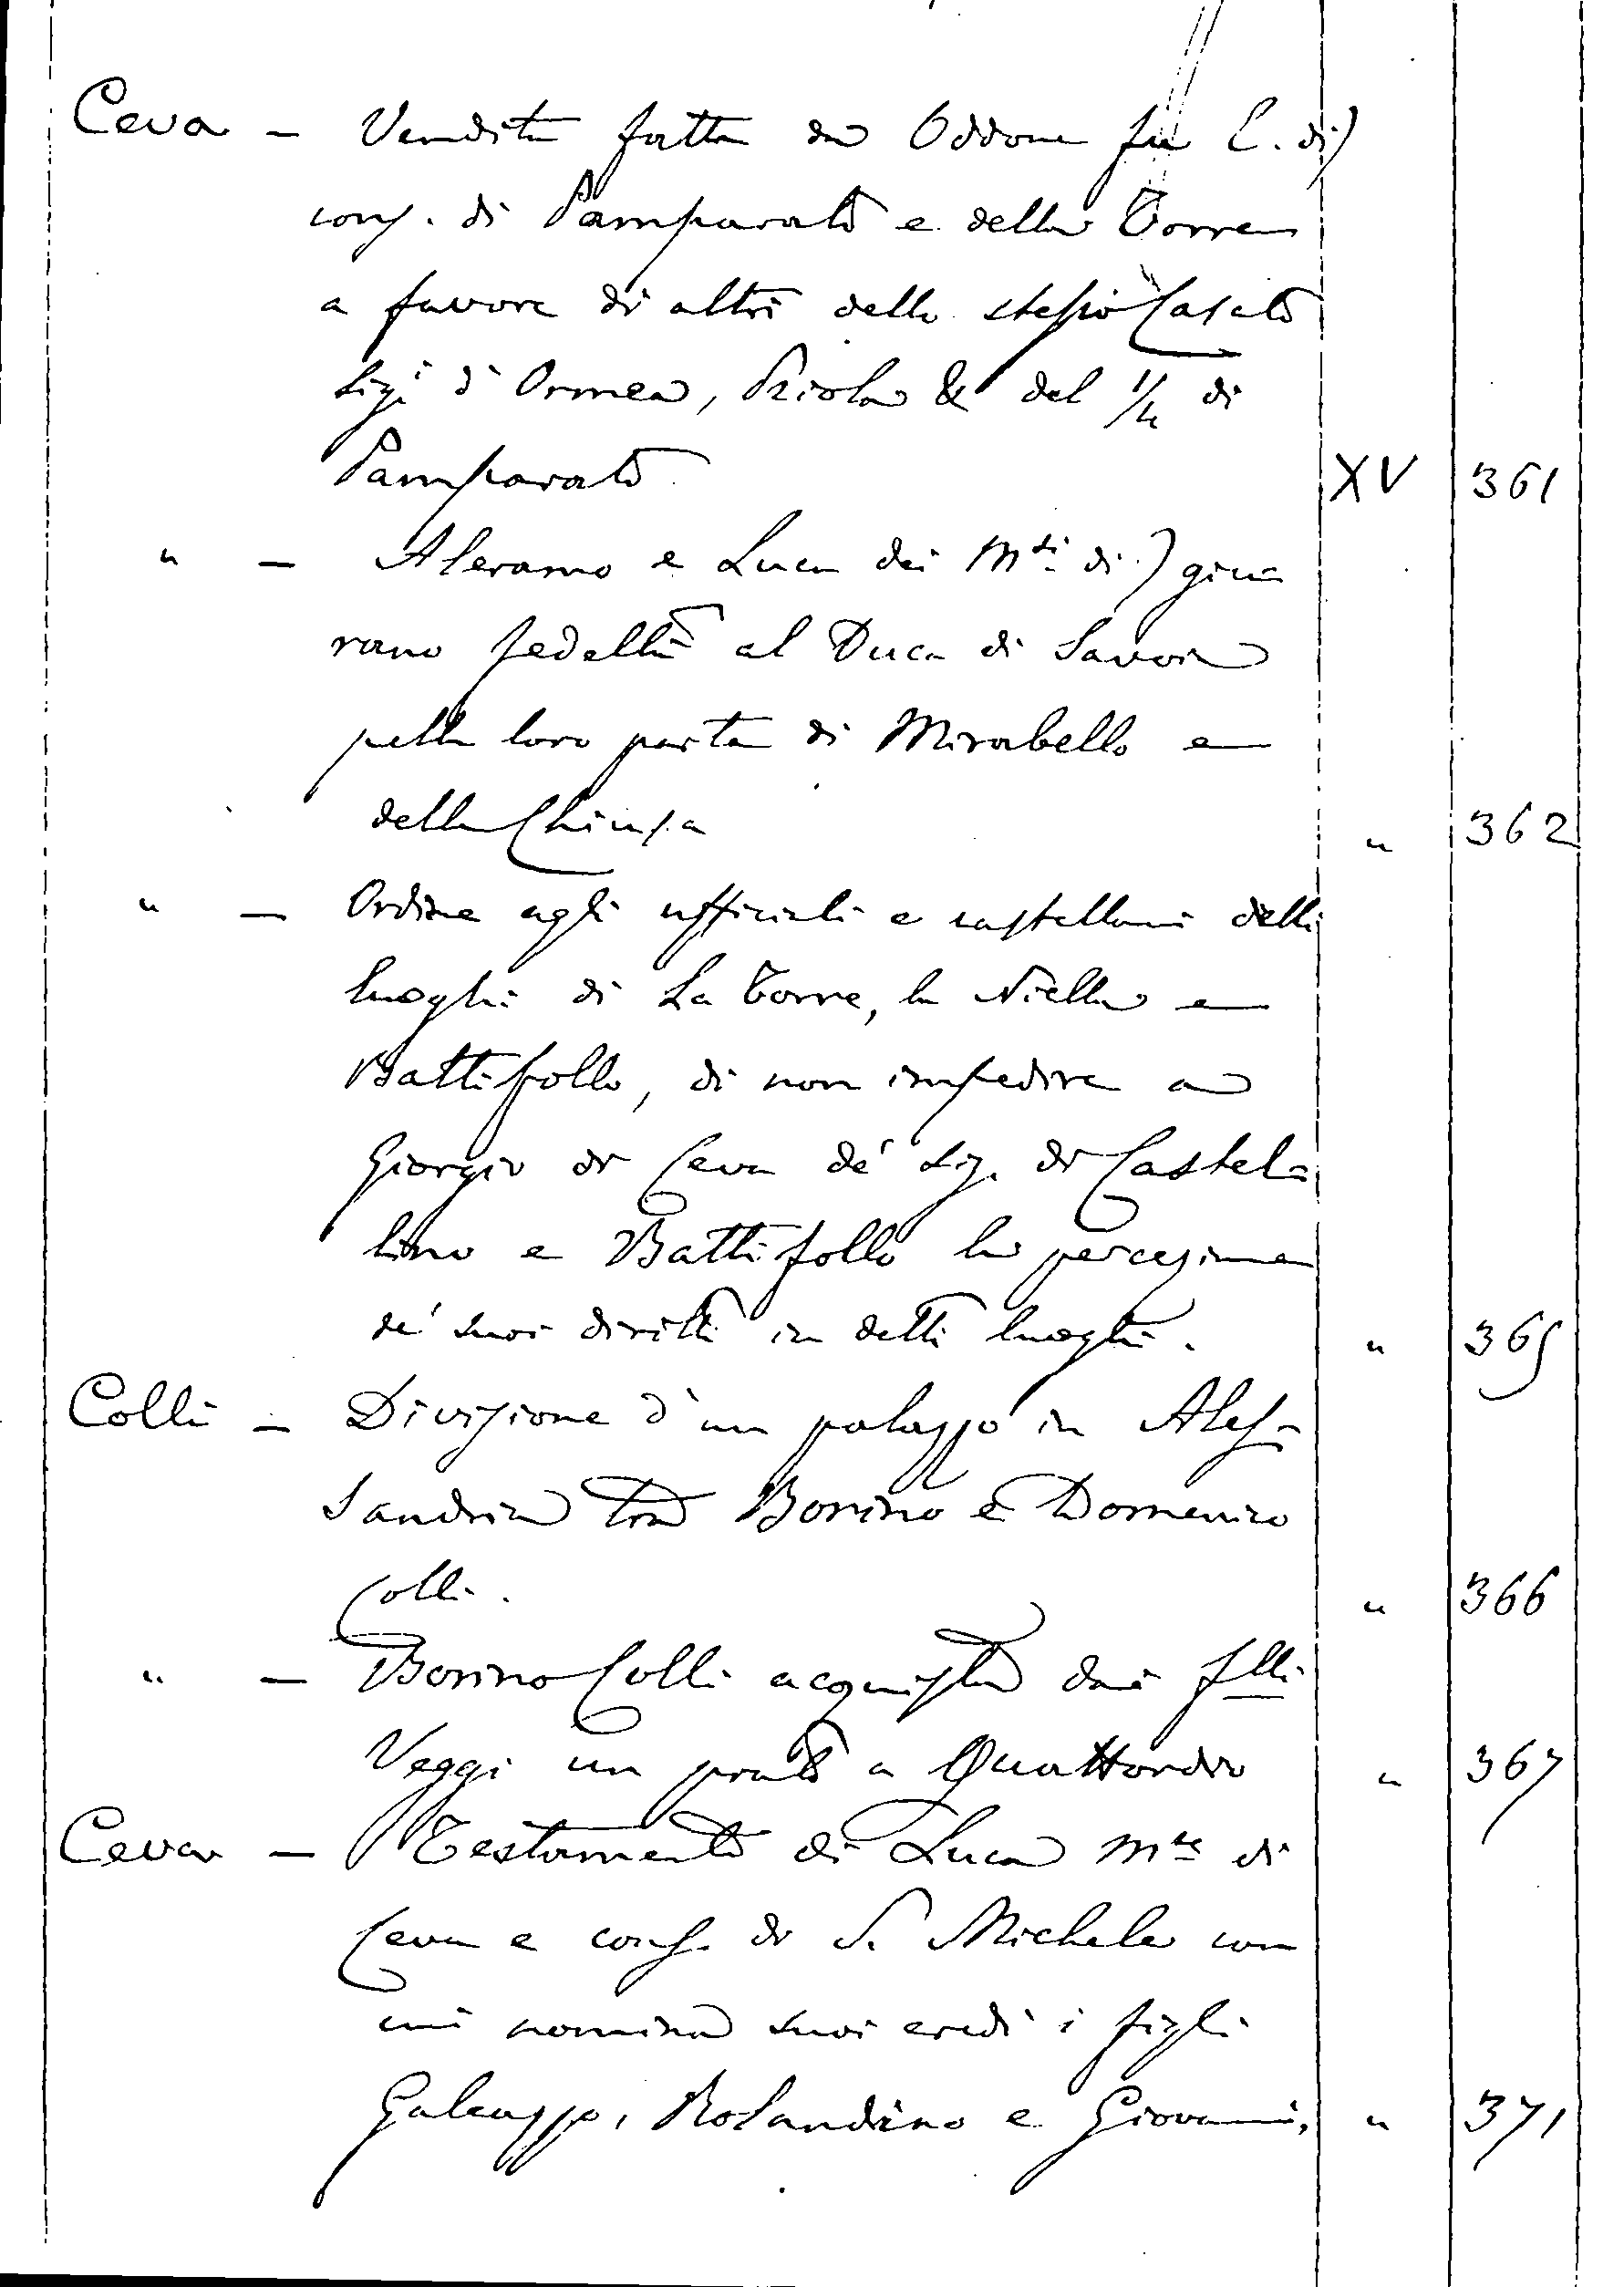 Ceva - Vendita fatta da Oddone fu L. di)
cons. di Pamparato e della Torre
a favore di altri dello stesso Casato
sigi d'Ormea, Priola & del 1/4 di
Pamparato XV 361
" - Aleramo e Luca dei Msi di) giu-
rano fedeltà al Duca di Savoia
pella loro parte di Mirabello e
della Chiusa " 362
" - Ordine agli ufficiali e castellani delli
luoghi di La Torre, la Niella e
Battifollo, di non impedire a
Giorgio di Ceva de' sig. di Castel=
lino e Battifollo la percezione
de' suoi diritti in detti luoghi. " 365
Colli - Divisione d'un palazzo in Ales-
sandria tra Borino e Domenico
Colli. " 366
" - Borino Colli acquista dai flli
Veggi un prato a Quattordio " 367
Ceva - Testamento di Luca Mse di
Ceva e cons. di S. Michele con
cui nomina suoi eredi i figli
Galeazzo, Rolandino e Giovanni, " 371